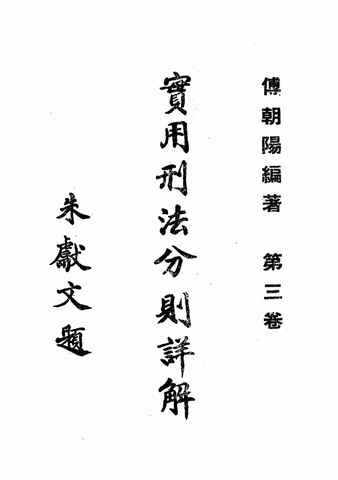 傅朝陽編著 第三卷
實用刑法分則詳解
朱獻文題